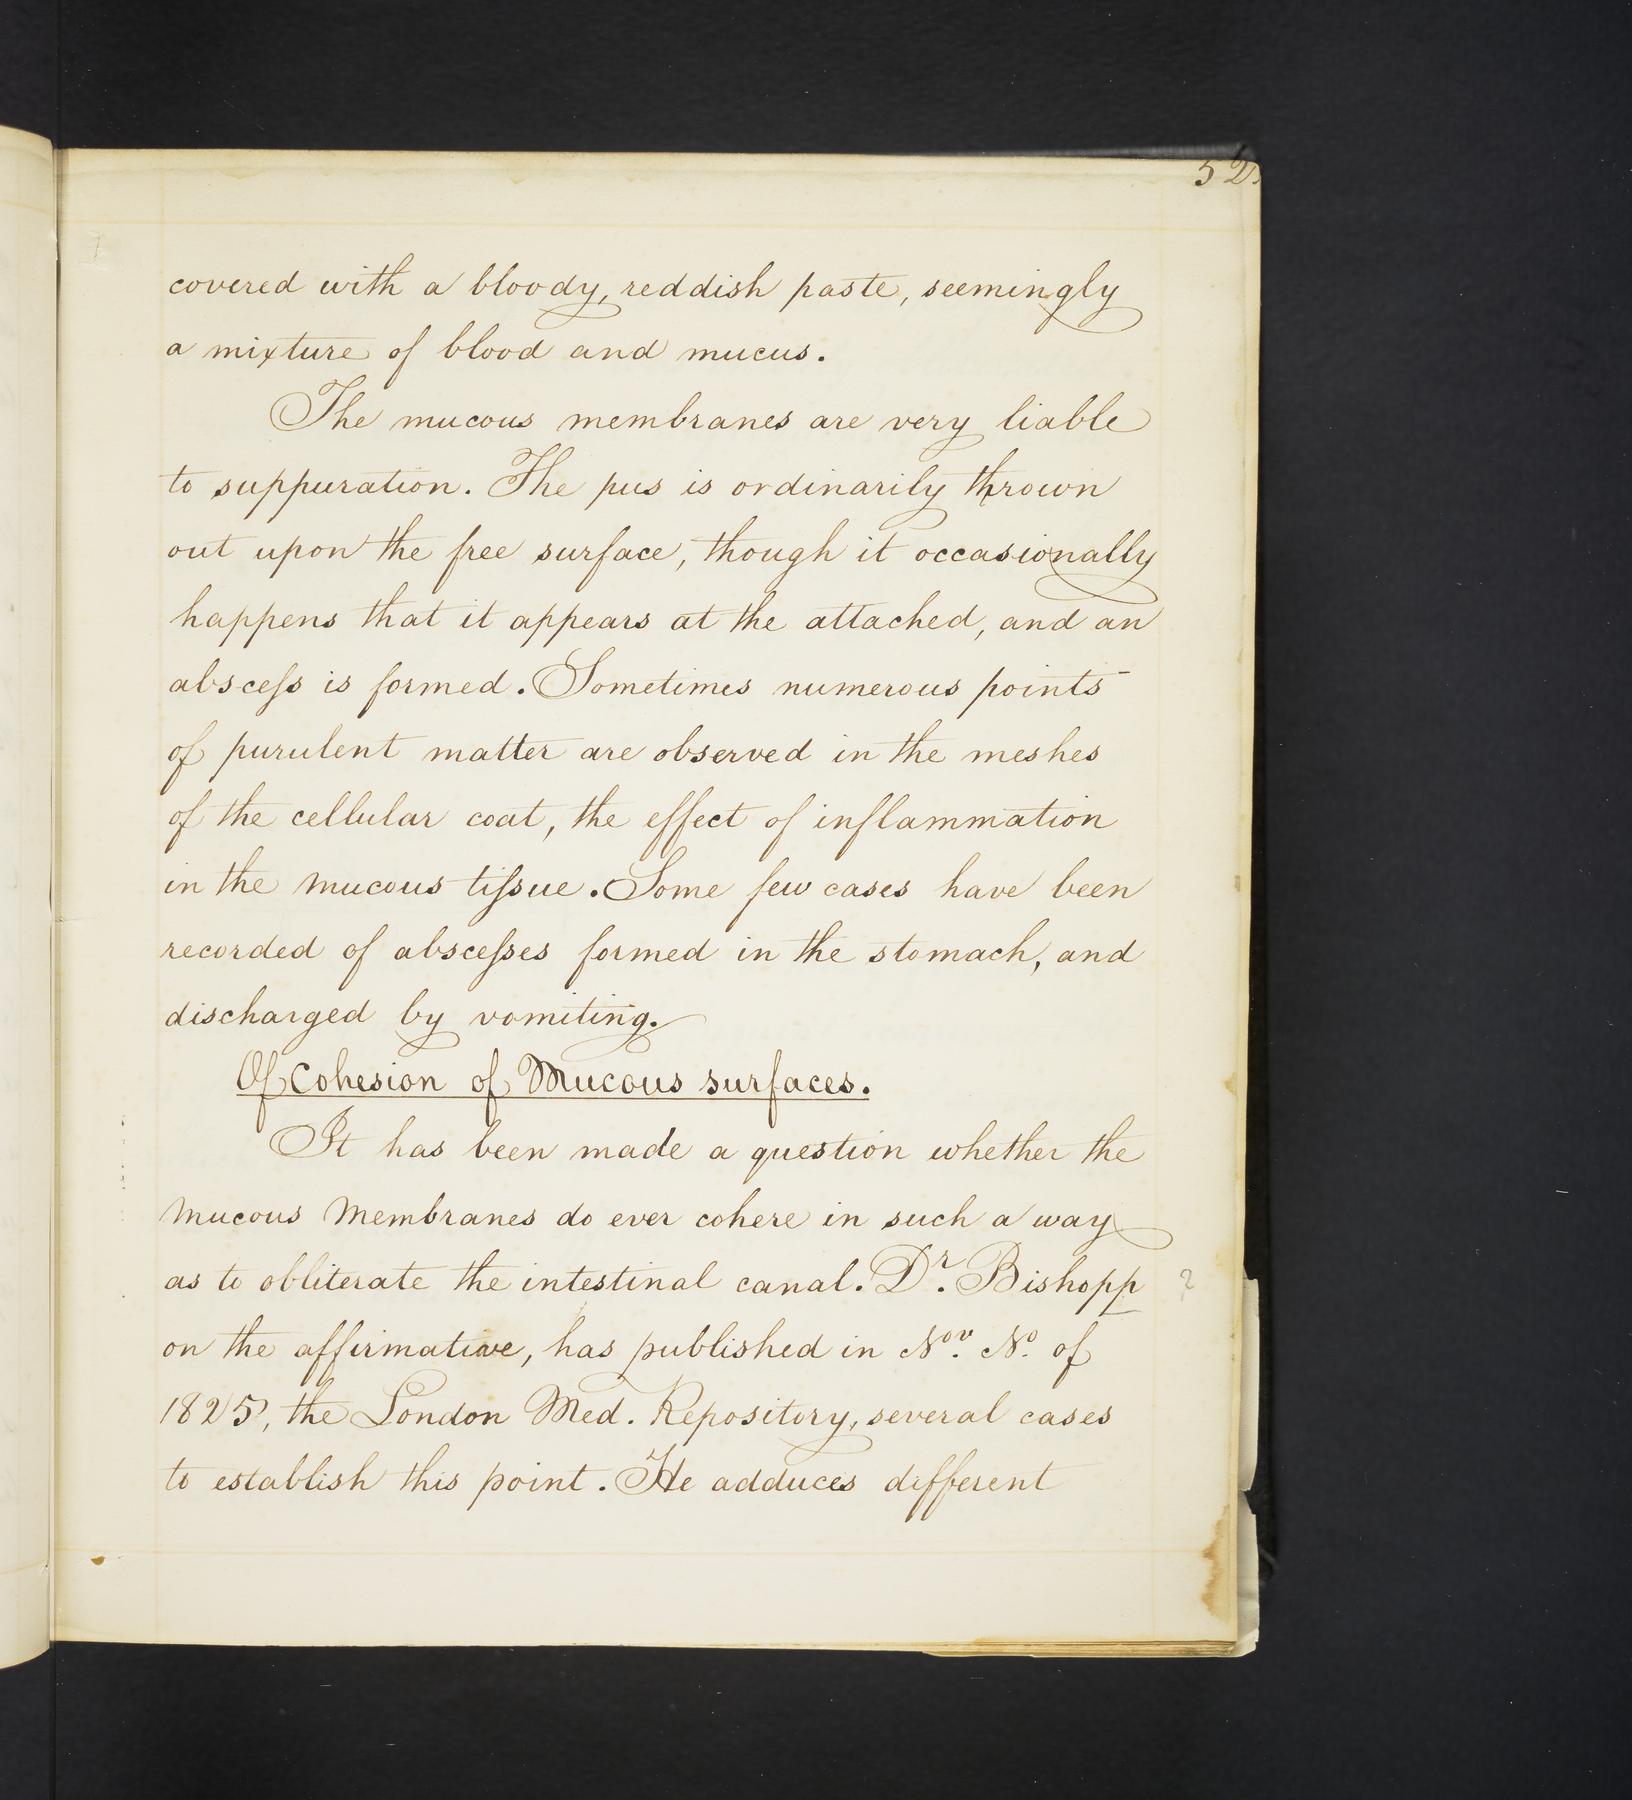 52
covered with a bloody, reddish paste, seemingly
a mixture of blood and mucus.
The mucous membranes are very liable
to suppuration. The pus is ordinarily thrown
out upon the free surface, though it occasionally
happens that it appears at the attached, and an
abscess is formed. Sometimes numerous points
of purulent matter are observed in the meshes
of the cellular coat, the effect of inflammation
in the mucous tissue. Some few cases have been
recorded of abscesses formed in the stomach, and
discharged by vomiting.
Of Cohesion of Mucous surfaces.
It has been made a question whether the
mucous Membranes do ever cohere in such a way
as to obliterate the intestinal canal. Dr. Bishopp ?
on the affirmative, has published in Nov. No. of
1825, the London Med. Repository, several cases
to establish this point. He adduces different